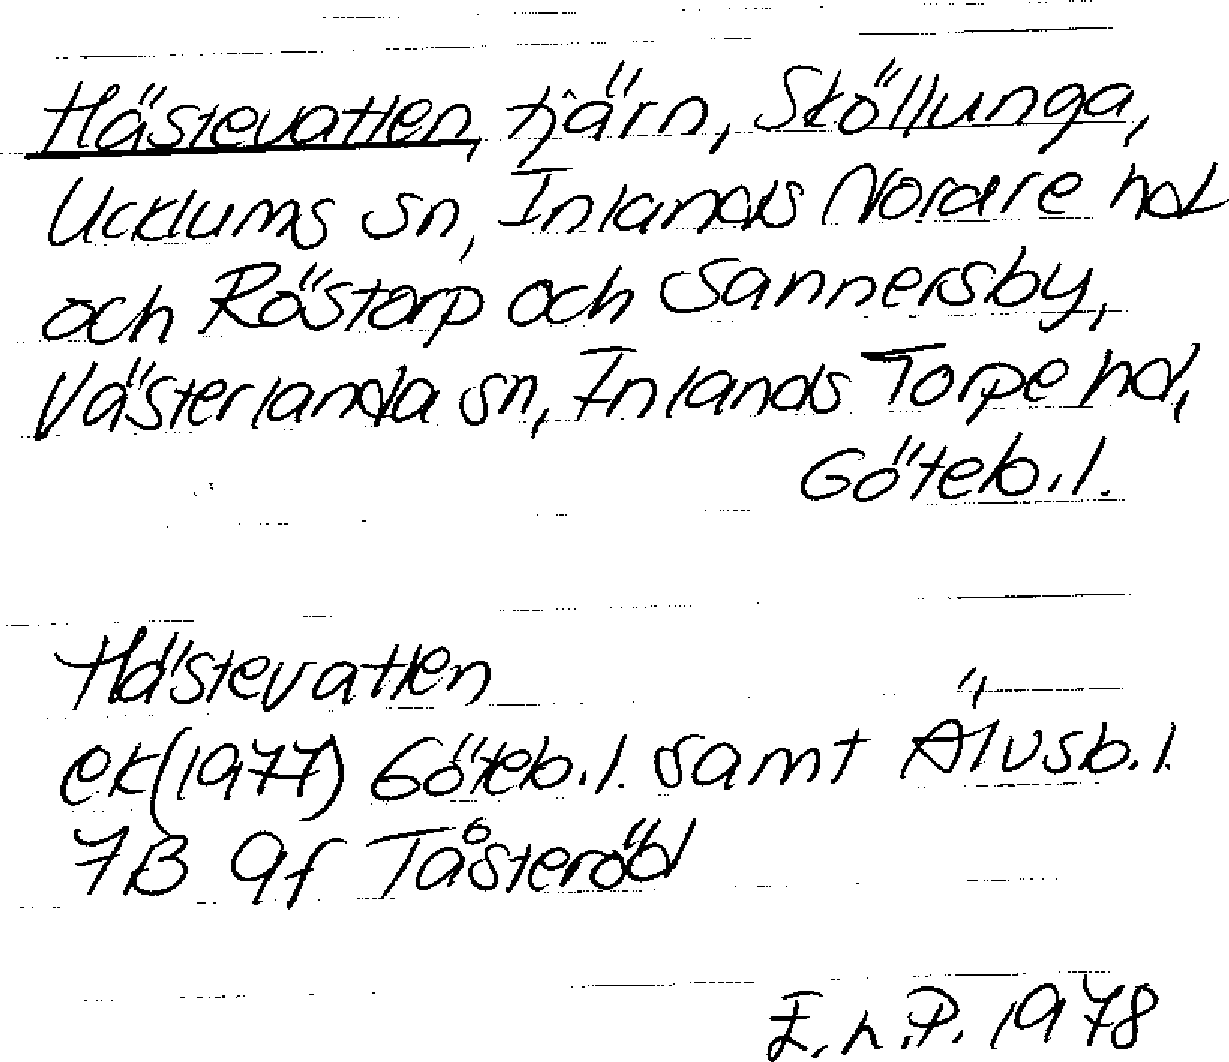 Hästevatten, tjärn, Sköllunga,
Ucklums sn, Inlands Nordre hd
och Röstorp och Sannersby,
Västerlanda sn, Inlands Torpe hd,
Göteb.l.
Hästevatten
ek(1977) Göteb.l. samt Älvsb.l.
7B 9f Tåsteröd
E.h.P. 1978